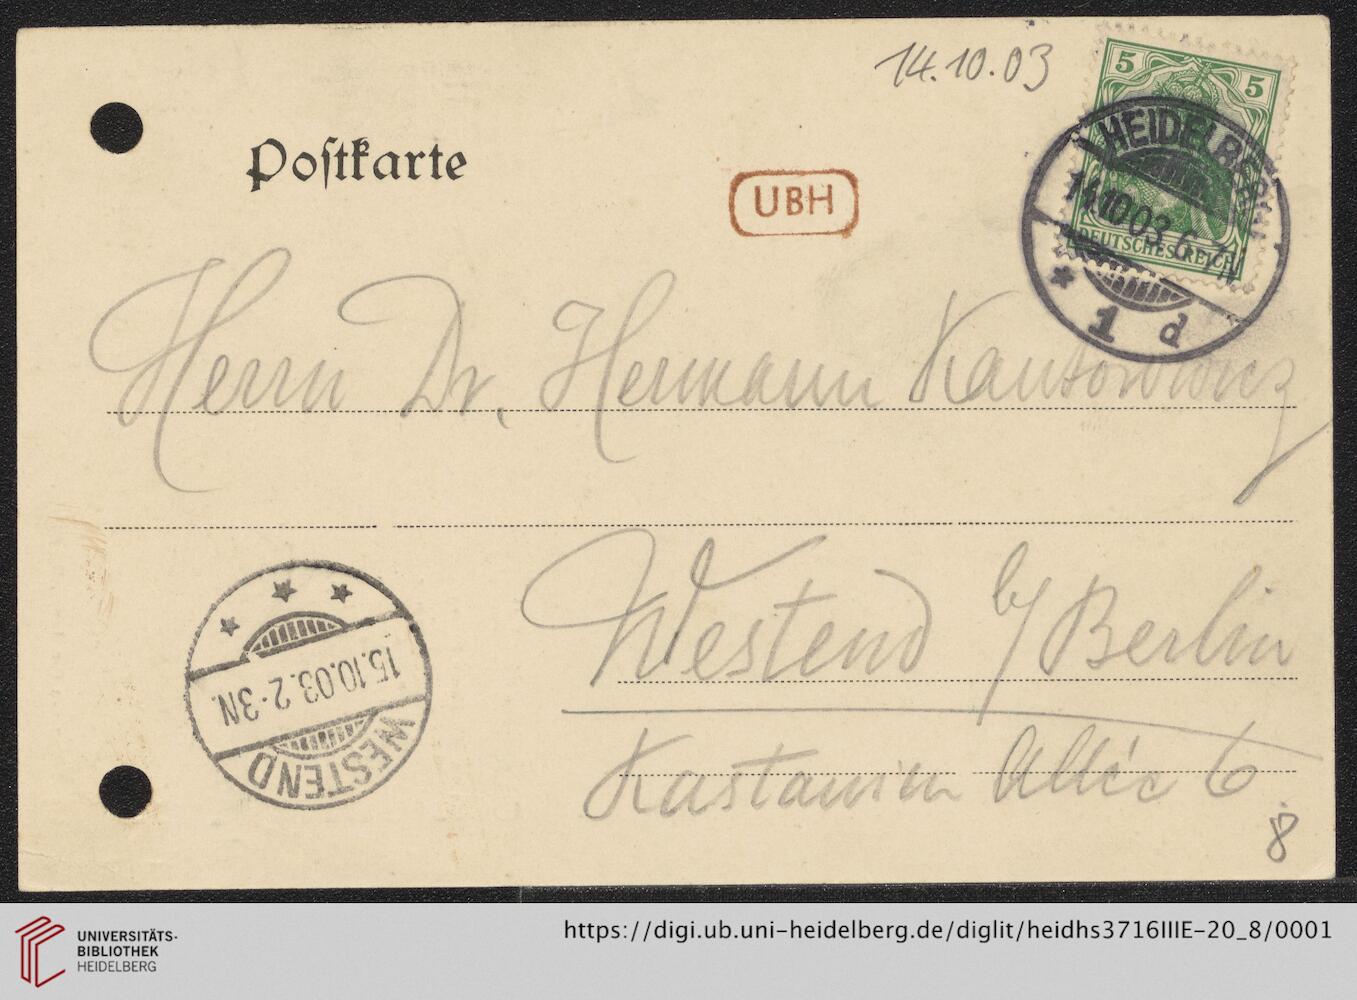 14.10.03
5 5
HEIDELBERG
14.10.03. 6-7 N
DEUTSCHES REICH
* 1 d
Poſtkarte
UBH
Herrn Dr. Hermann Kantorowicz
Westend b/ Berlin
Kastanien Allée 6
8
15.10.03. 2-3N.
WESTEND
UNIVERSITÄTS-
BIBLIOTHEK
HEIDELBERG
https://digi.ub.uni-heidelberg.de/diglit/heidhs3716IIIE-20_8/0001